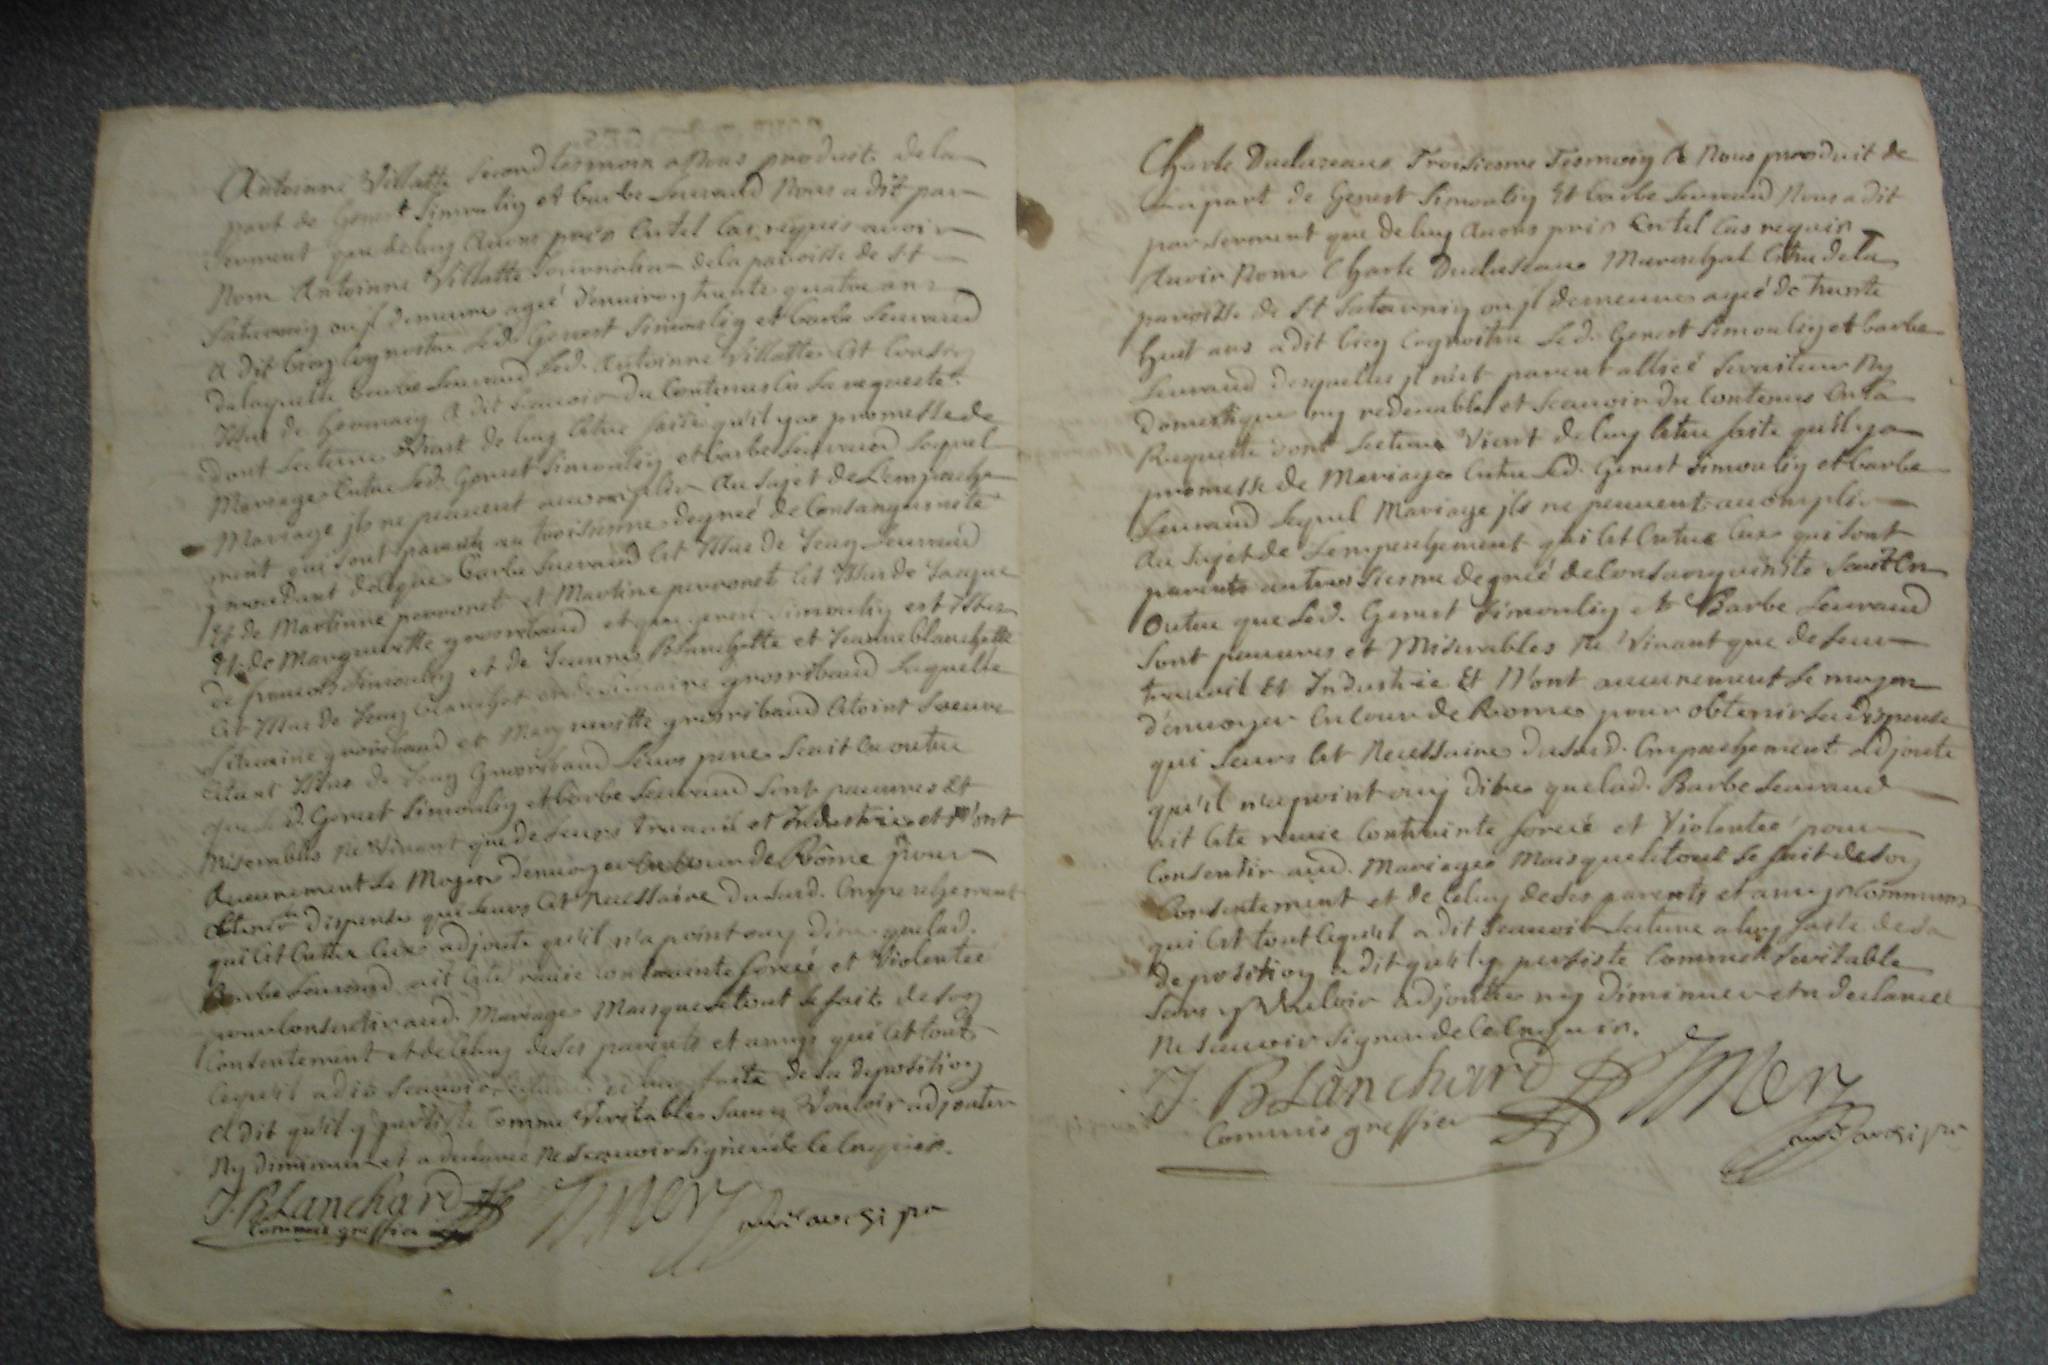 Antoinne Villatte second tesmoin a Nous produit de la
part de Genest Simouliy et barbe Leuraud Nous a dit par
serment que de luy Avons pris En tel Cas requis avoir
Nom Antoinne Villatte Journalier de la paroisse de St
Saturniy ou jl demeure ageé d'enuiroy trente quatre ans
A dit biey Cognoitre Led. Genest Simouliy et barbe Leuraud
de laquelle barbe Leuraud Led. Antoinne Villatte Est Cousiy
Issus de Germaiy A dit Scauoir du Contenus En La requeste
dont Lecture Vient de luy Estre faite qu'il y a promesse de
Mariage Entre Led. Genest Simouliy et barbe Leuraud Lequel
Mariage jls ne peuuent accomplir Au Sujet de L'empesche
ment qui sont parents au troisieme degreé de Consanguinité
prouenant de ce que barbe Leuraud Est Issue de Jeay Leuraud
Et de Martinne perronet et Martine perronet Est Issue de Jacque
Et de Margueritte groisribaud et que genest Simouliy est issus
de francois Simouliy et de Jeanne Blanchette et Jeanne blanchette
Est Issue de Jeay blanchet et de groisribaud Laquelle
groisribaud et Margueritte groisribaud Etoint Soeurs
Etant Issus de Jeay Groisribaud Leurs pere Scait En outre
que Led. Genest Simouliy et barbe Leuraud Sont pauures Et
Miserables Ne Viuant que de Leurs trauail et Industrie et N'ont
Aucunement Le Moyen d'enuoyer En Cour de Rôme pour
obtenir La dispense qui Leurs Est Necessaire du Susd. Empeschement
qui Est Entre Eux adjoute qu'il n'a point ouy dire que lad.
Barbe Leuraud ait Esté rauie contrainte forceé et Violenteé
pour Consentir aud. Mariage Mais que le tout Se fait de Soy
Consentement et de Celuy de Ses parents et amys qui Est tout
Ce qu'il a dit Scauoir Lecture a luy faite de Sa deposition
A dit qu'il y persiste Comme Veritable Sans y Vouloir adjouter
Ny diminuer et a declareé Ne Scauoir Signer de Ce Enquis.
J. BLanchard
Commis greffier
Charle Ducluzeaus Troisiesme Tesmoiy A Nous produit de
La part de Genest Simouliy Et barbe Leuraud Nous a dit
par Serment que de luy Auons pris En tel Cas requis
Auoir Nom Charle Duclaseaus Mareschal Estre de la
paroisse de St Saturniy ou jl demeure ageé de trente
huit ans a dit biey Cognoitre Led. Genest Simouliy et barbe
Leuraud desquelles jl n'est parent allieé Seruiteur Ny
domestique ny redeuable et Scauoir du Contenus En La
Requeste dont Lecture Vient de luy Estre faite qu'il y a
promesse de Mariage Entre Led. Genest Simouliy et barbe
Leuraud Lequel Mariage jls ne peuuent accomplir
Au Sujet de L'empeschement qui Est Entre Eux qui Sont
parents au troisiesme degreé de Consanguinité Scait En
Outre que Led. Genest Simouliy et Barbe Leuraud
Sont pauures et Miserables Ne Viuant que de Leur
trauail Et Industrie Et N'ont aucunement Le moyen
d'enuoyer En Cour de Rome pour obtenir La dispense
qui Leurs Est Necessaire du Susd. Empeschement adjoute
qu'il n'a point ouy dire que lad. Barbe Leuraud
ait Esté rauie Contrainte forceé et Violenteé pour
Consentir aud. Mariage Mais que le tout Se fait de Soy
Consentement et de Celuy de Ses parents et amys Communs
qui Est tout Ce qu'il a dit Scauoir Lecture a luy faite de Sa
deposition a dit qu'il y persiste Comme Veritable
Sans y Vouloir adjouter ny diminuer et a declareé
Ne Scauoir Signer de Ce Enquis.
J. BLanchard
Commis greffier